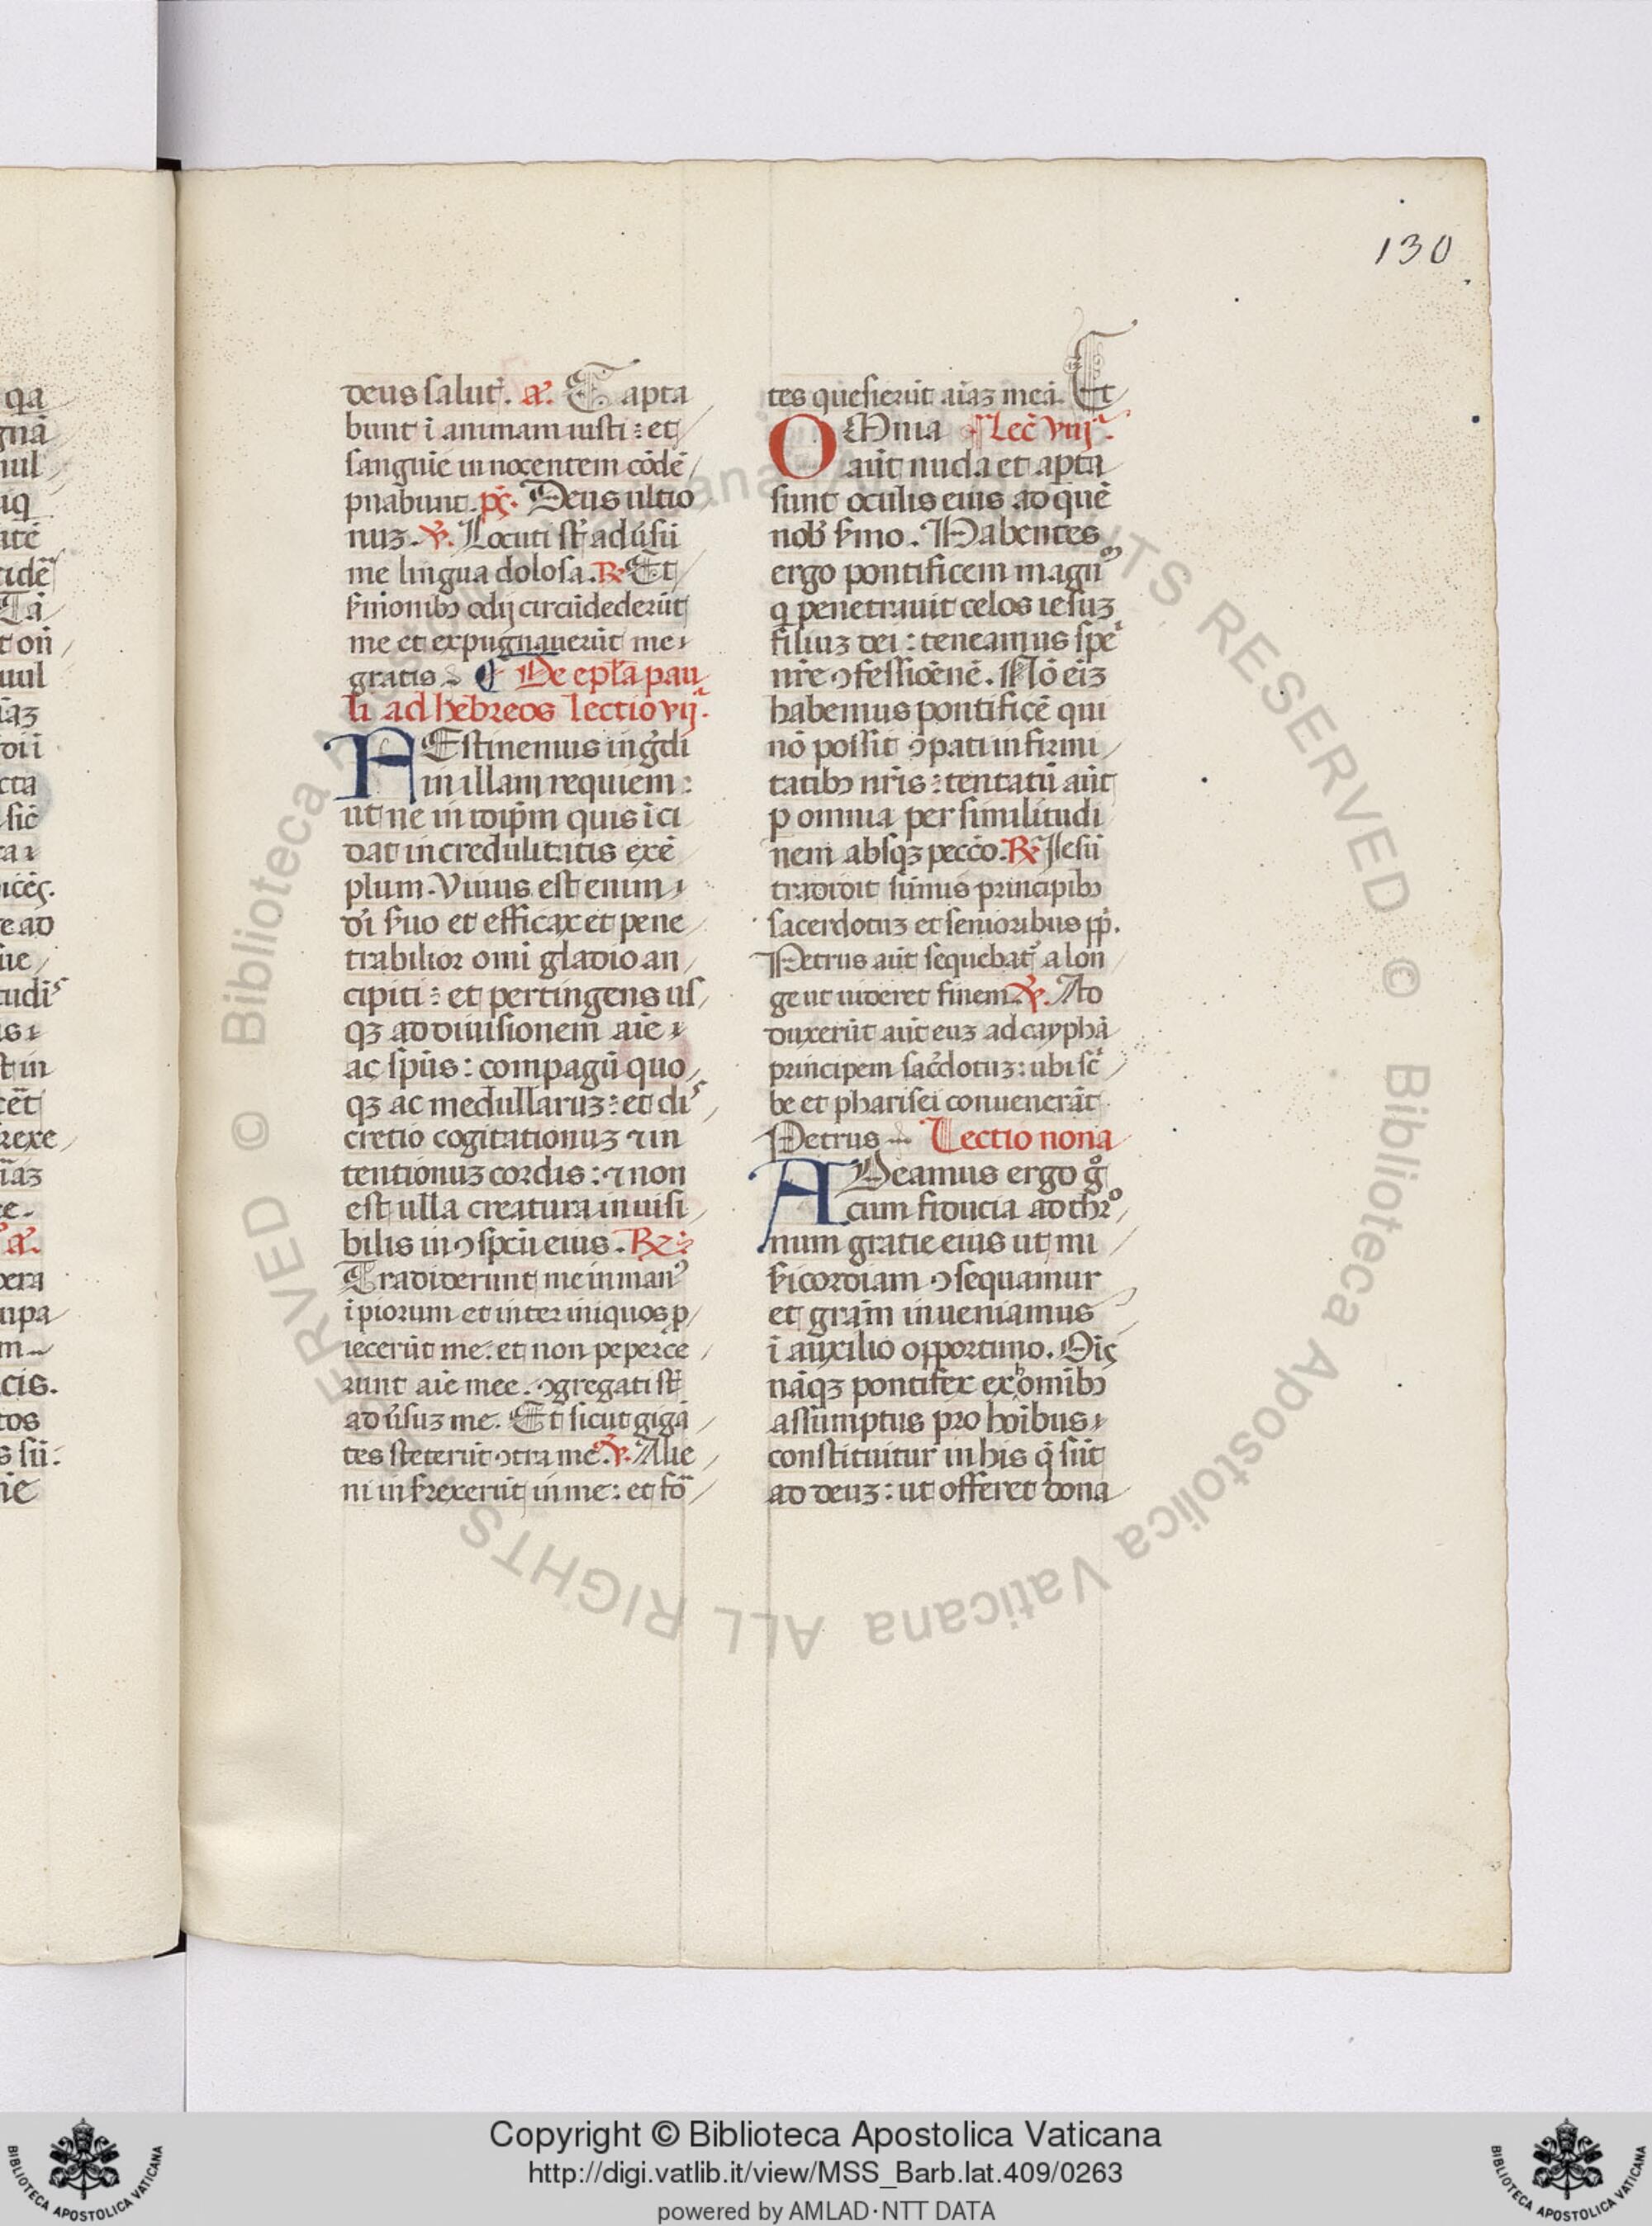 130
deus salut̃. a͞. Capta
bunt ī animam iusti : et
sanguīe innocentem cōdē
pnabunt. pš. Deus ultio
nuꝫ. ℣. Locuti st̄ adūsū
me lingua dolosa. ℟ Et
ẜmonibꝫ odij circūdederūt
me et expugnauerūt me
gratis ¶ De epl̄a pau
li ad hebreos lectio vij.
FEstinemus ingdi
in illam requiem :
ut ne in idip̄m quis īci
dat incredulitatis exē
plum. Viuus est enim
dī ẜmo et efficax et pene
trabilior omī gladio an
cipiti : et pertingens us
qꝫ ad diuisionem aīe
ac sp̄us : compagū quo
qꝫ ac medullaruꝫ : et dis
cretio cogitationuꝫ ⁊ in
tentionuꝫ cordis : ⁊ non
est ulla creatura inuisi
bilis in ꝯspcū eius. ℟:
Tradiderunt me in man9
ipiorum et inter iniquos p
iecerūt me : et non peperce
runt aīe mee. ꝯgregati st̄
adūsuꝫ me. Et sicut gigā
tes steterūt ꝯtra me. ℣. Alie
ni inẜrexerūt in me : et fō
tes quesierūt aīaꝫ meā. Et
OMnia Lec̄ viij.
aūt nuda et apta
sunt oculis eius ad quē
nob̄ ẜmo. Habentes
ergo pontificem magnū
q penetrauit celos iesuꝫ
filiuꝫ dei : teneamus spei
nr̄e ꝯfessiōenē. Nō eiꝫ
habemus pontificē qui
nō possit ꝯpati infirmi
tatibꝫ nr̄is : tentatū aūt
p omnia per similitudi
nem absqꝫ pecc̄o. ℟ Iesū
tradidit sūmis principibꝫ
sacerdotuꝫ et senioribus pp̄.
Petrus aūt sequebat̄ a lon
ge ut uideret finem. ℣. Ad
duxerūt aūt euꝫ ad cayphā
principem sac̄dotuꝫ : ubi sc̄
be et pharisei conuenerāt
Petrus Lectio nona
ADeamus ergo g̊
cum fiducia ad thro
num gratie eius ut mi
ẜicordiam ꝯsequamur
et gram̄ inueniamus
ī auxilio opportuno. Oīs
nāqꝫ pontifex ex hoīibꝫ
assumptus pro hoībus
constituitur in his q̄ sūt
ad deuꝫ : ut offeret dona
Copyright © Biblioteca Apostolica Vaticana
http://digi.vatlib.it/view/MSS_Barb.lat.409/0263
powered by AMLAD·NTT DATA